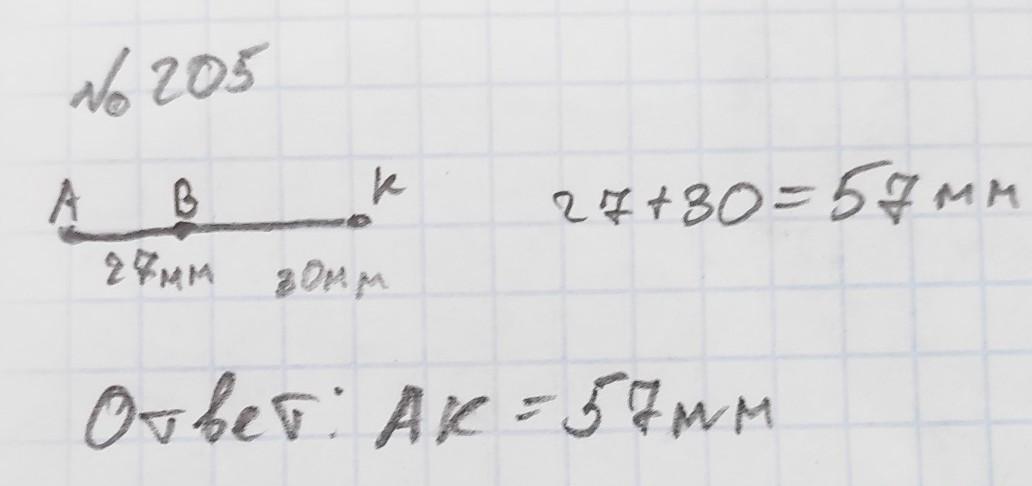 № 205
A B K
27мм 30мм
27+30=57мм
Ответ: АК=57мм